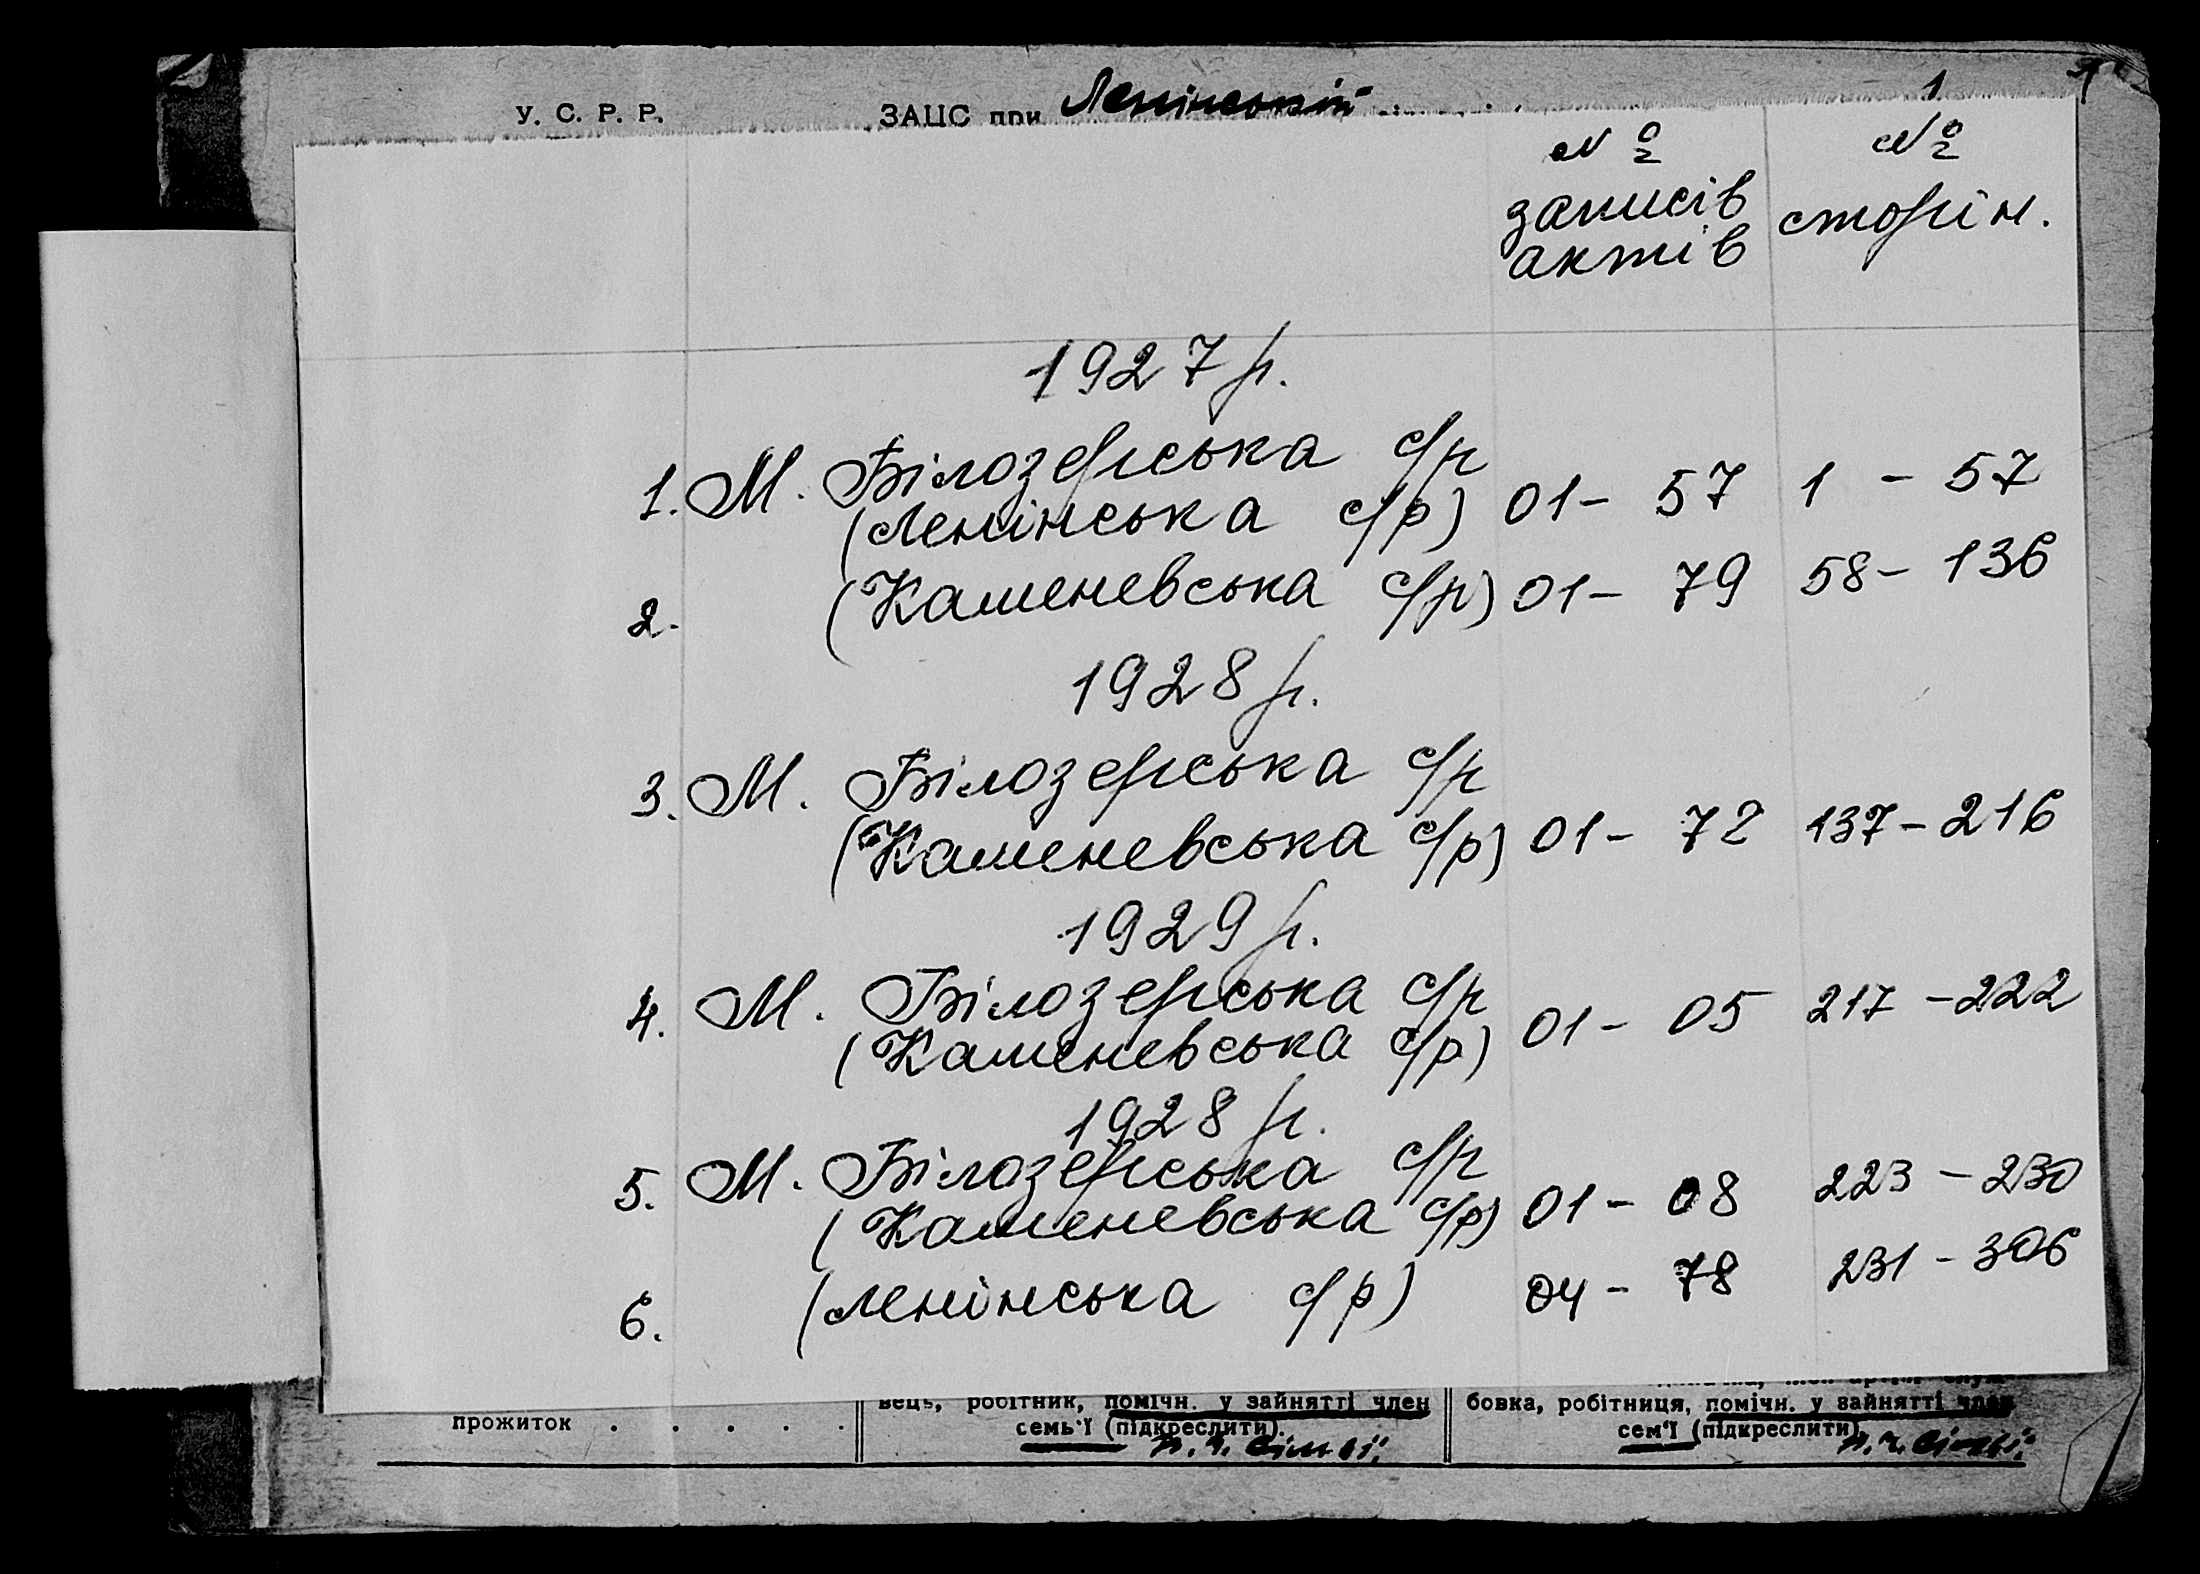 У. С. Р. Р. ЗАЦС при Ленінській 1
№ №
записів сторін.
актів
1927 р.
1. М. Білозерська с/р
(Ленінська с/р) 01 - 57 1 - 57
2. (Каменевська с/р) 01 - 79 58 - 136
1928 р.
3. М. Білозерська с/р
(Каменевська с/р) 01 - 78 137 - 216
1929 р.
4. М. Білозерська с/р
(Каменевська с/р) 01 - 05 217 - 222
1928 р.
5. М. Білозерська с/р
(Каменевська с/р) 01 - 08 223 - 230
6. (Ленінська с/р) 04 - 78 231 - 306
вець, робітник, помічн. у зайнятті член бовка, робітниця, помічн. у зайнятті член
прожиток . . . . . семь'ї (підкреслити). сем'ї (підкреслити)